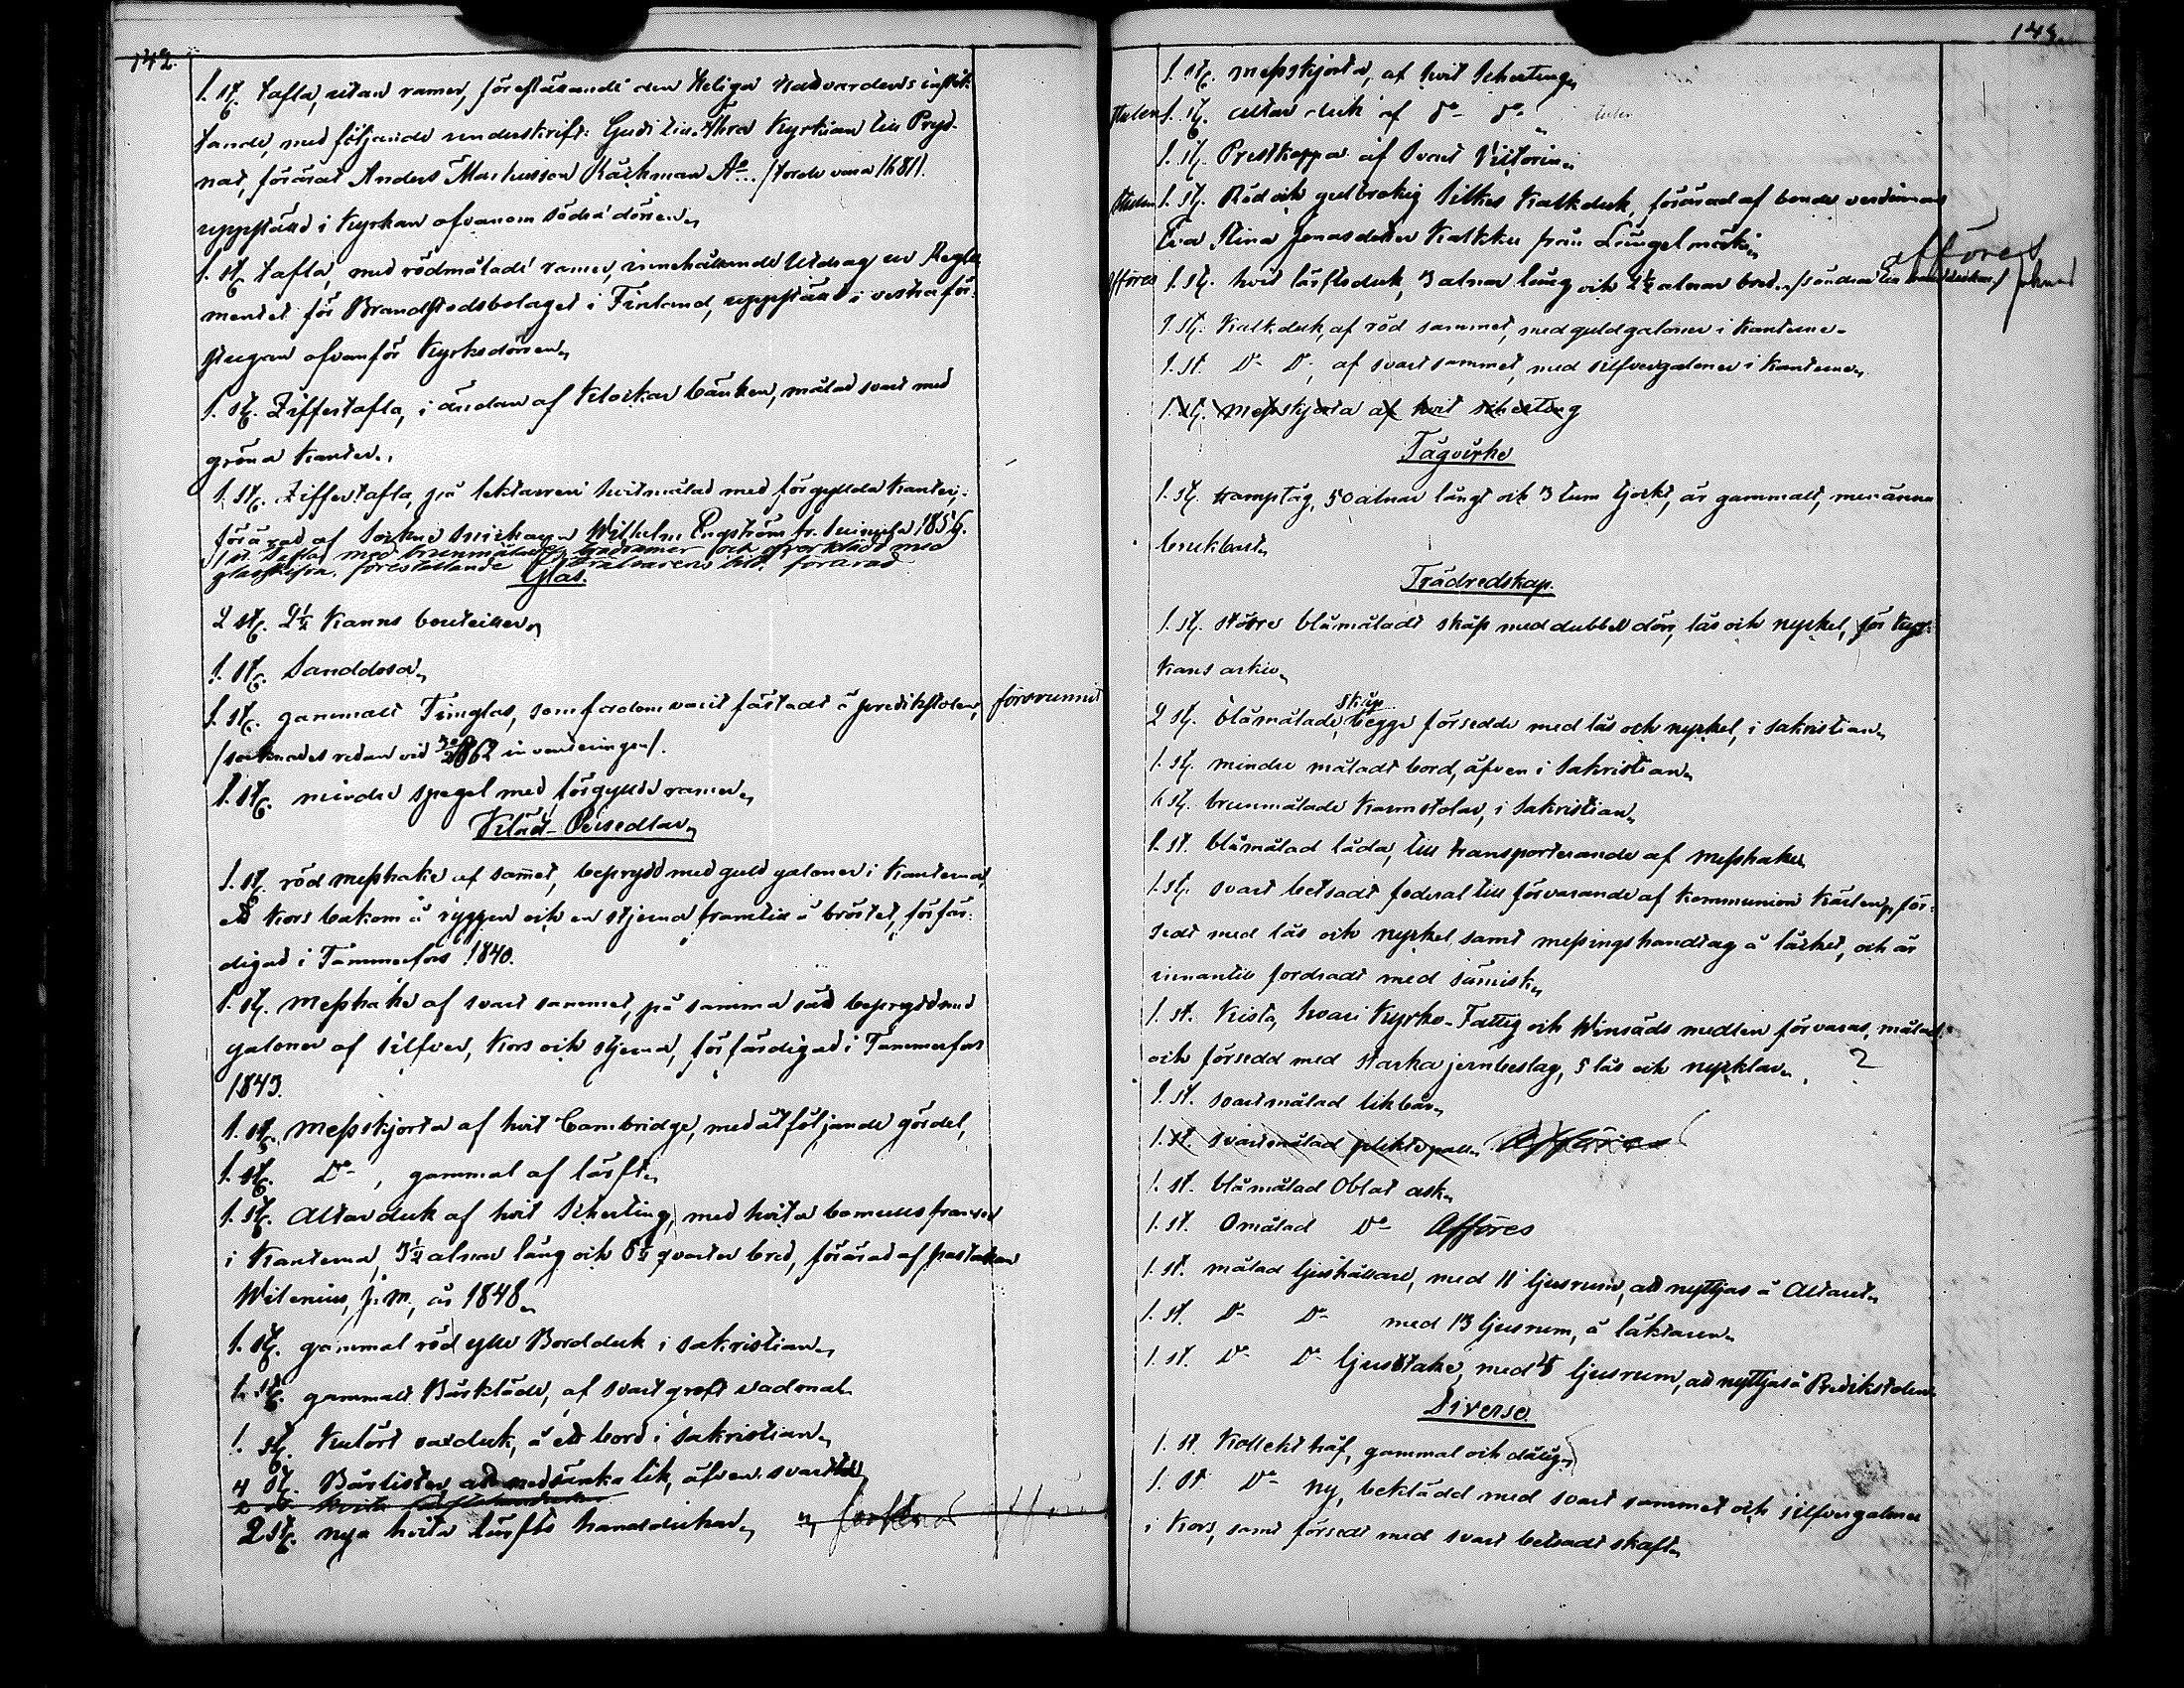 142.
1. st. tafla, utan ramar, föreställande den Heliga Nattvardens instik-
tande, med följande underskrift: Gudi till Ähra Kyrkian till Pryd-
nat, förärat Anders Markusson Räckman Ao... /torde vara 1681/.
uppstäld i Kyrkan ofvanom södra dörren
1. st. tafla, med rödmålade ramar, innehållande Utdrag ur Regle-
mentet för Brandstodsbolaget i Finland, uppstäld i vestra för-
stugan ofvanför Kyrkodörren
1. st. Ziffertafla, i ändan af Klockar bänken, målad svart med
gröna Kanter.
1. st. Ziffertafla, på lektaren hvitmålad med förgyllda Kanter,
förärad af Sockne Wilhelm Engström fr. 1854.
1 st. taflas med brunmålade träramar och öfverklädd med
glasskifva, föreställande Frälsarens bild. förärad
Glas.
2 st. 2½ Kanns bouteiller
1. st. Sanddosa
1. st. gammalt Timglas, som fordom varit fästadt å predikstolen, försvunnit
/saknades redan vid 1862 inventeringen/.
1. st. mindre spegel med förgyllda ramar
Kläd-Persedlar
1. st. röd messhake af sammet, beprydd med guld galoner i Kanterna,
ett Kors bakom å ryggen och en stjerna framtill å bröstet, förfär-
digad i Tammerfors 1840.
1. st. Messhake af svart sammet, på samma sätt beprydd med
galoner af silfver, Kors och stjerna, förfärdigad i Tammerfors
1843.
1. st. Messskjorta af hvit Cambridge, med åtföljande gördel,
1. st. Do, gammal af lärft
1. st. Altar duk af hvit Scherting, med hvita bomulls fransar
i Kanterna, 3½ alnar lång och 5½ qvarter bred, förärad af pastorskan
Wilenius, J. M., år 1848
1. st. gammal röd ylle Bordduk i sakristian
1. st. gammalt Bårkläde, af svart groft vadmal
1. st. Kulört vaxduk, å ett bord i sakristian
4 st. Bårlister, att nedsänka lik, äfven svarta
2 st. hvita
2 st. nya hvita lärfts handdukar
143.
1. st. messskjorta, af hvit Scherting
Stulen 1. st. Altar duk af do do
1. st. Prestkappa af svart Viktoria
Stulen 1. st. Röd och gulbrokig Silkes Kalkduk, förärad af bonde verdinnan
Eva Stina Jonasdotter Kalkku från Längelmäki
afföres
Afföres 1. st. hvit lärftsduk, 3 alnar lång och 2½ alnar bred /söndrad till handdukar/
1. st. Kalkduk, af röd sammet, med guldgaloner i Kanterne
1. st. Do Do, af svart sammet, med silfvergaloner i Kanterne
1. st. Messskjorta af hvit scherting
Tågvirke
1. st. kamptåg, 50 alnar långt och 3 tum tjockt, är gammalt, men ännu
brukbart
Trädredskap.
1. st. större blåmåladt skåp med dubbel dörr, lås och nyckel, för Kyr-
kans arkiv
skåp
2 st. blåmålade, begge försedde med lås och nyckel, i sakristian
1. st. mindre måladt bord, äfven i Sakristian
4 st. brunmålade Karmstolar, i Sakristian
1. st. blåmålad låda, till transporterande af Messhaken
1. st. svart betsadt foderal till förvarande af Kommunion Kärlen, för-
sedt med lås och nyckel, samt messingshandtag å locket, och är
innantill fordradt med sämisk
1. st. Kista, hvari Kyrko- Fattig och Utsäds medlen förvaras, målad
och försedd med starka jernbeslag, 5 lås och nycklar ?
1. st. svartmålad likbår
1. st. svartmålad pliktspall Afföres
1. st. blåmålad Oblat ask
1. st. Omålad Do Afföres
1. st. målad ljushållare, med 11 ljusrum, att nyttjas å Altaret
1. st. Do Do med 13 ljusrum, å läktaren
1. st. Do Do ljusstake, med 4 ljusrum, att nyttjas å Predikstolen
Diverse.
1. st. Kollekt håf, gammal och dålig
1. st. Do ny, beklädd med svart sammet och silfvergaloner
i Kors, samt försedt med svart betsadt skaft